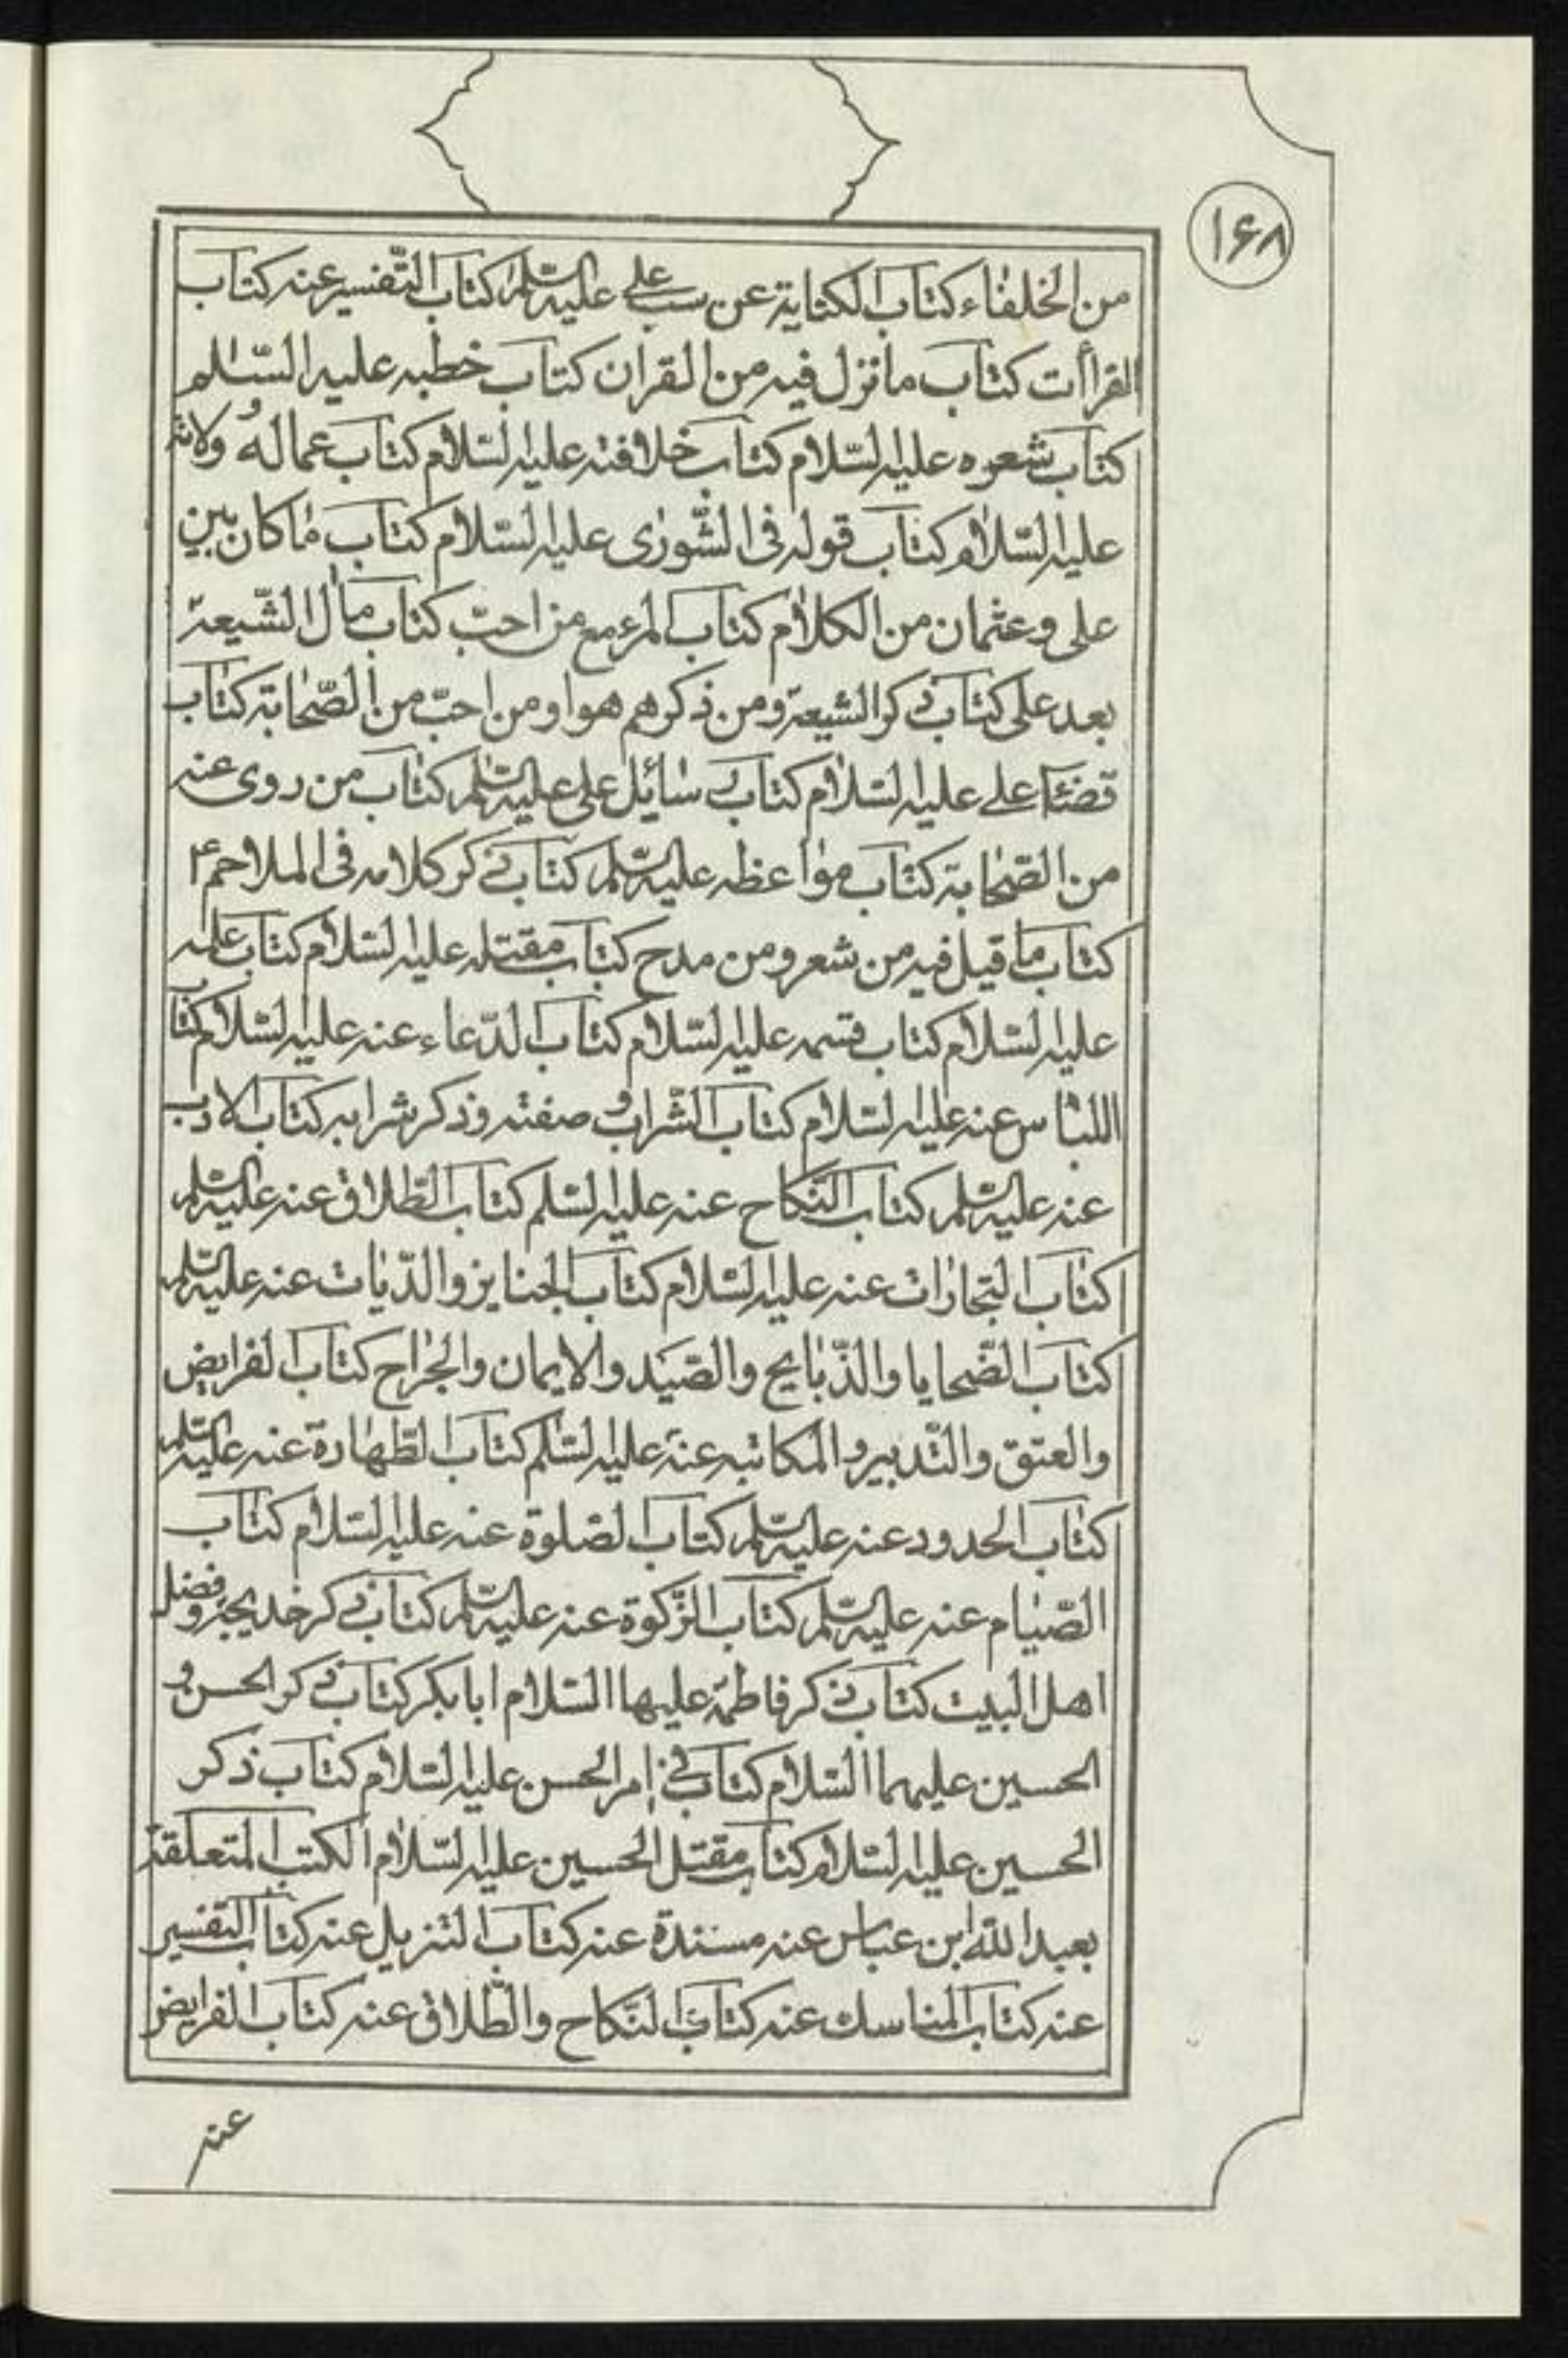 ١۶٨
من الخلفاء كتاب الكتابة عن سب على عليه السّلم كتاب التّفسير عنه كتاب
القراأت كتاب ما نزل فيه من القران كتاب خطبه عليه السّلم
كتاب شعره عليه السّلام كتاب خلافته عليه السّلام كتاب عماله ولاته
عليه السّلام كتاب قوله فى الشّورى عليه السّلام كتاب ما كان بين
على و عثمان من الكلام كتاب المرء مع من احبّ كتاب مأل الشّيعة
بعد على كتاب ذكر الشيعة ومن ذكرهم هو او من احبّ من الصّحابة كتاب
قضاء على عليه السّلام كتاب رسائل على عليه السّلم كتاب من روى عنه
من الصّحابة كتاب مواعظه عليه السّلم كتاب ذكر كلامه فى الملاحم
كتاب ما قيل فيه من شعر ومن مدح كتاب مقتله عليه السّلام كتاب علمه
عليه السّلام كتاب قسمه عليه السّلام كتاب الدّعاء عنه عليه السّلام كتاب
اللباس عنه عليه السّلام كتاب الشّراب و صفته وذكر شرابه كتاب الادب
عنه عليه السّلم كتاب النّكاح عنه عليه السّلم كتاب الطّلاق عنه عليه السّلم
كتاب التجارات عنه عليه السّلام كتاب الجنايز والدّيات عنه عليه السّلم
كتاب الضّحايا والذّبايح والصّيد والايمان والجراح كتاب الفرايض
والعتق والتّدبير والمكاتبه عنه عليه السّلم كتاب الطّهارة عنه عليه السّلم
كتاب الحدود عنه عليه السّلم كتاب الصّلوة عنه عليه السّلام كتاب
الصّيام عنه عليه السّلم كتاب الزّكوة عنه عليه السّلم كتاب ذكر خديجة وفضل
اهل البيت كتاب ذكر فاطمة عليها السّلام ابا بكر كتاب ذكر الحسن و
الحسين عليهما السّلام كتاب فى امر الحسن عليه السّلام كتاب ذكر
الحسين عليه السّلام كتاب مقتل الحسين عليه السّلام الكتب المتعلقة
بعبد الله ابن عباس عنه مسندة عنه كتاب التنزيل عنه كتاب التفسير
عنه كتاب المناسك عنه كتاب النّكاح والطّلاق عنه كتاب الفرايض
عنه